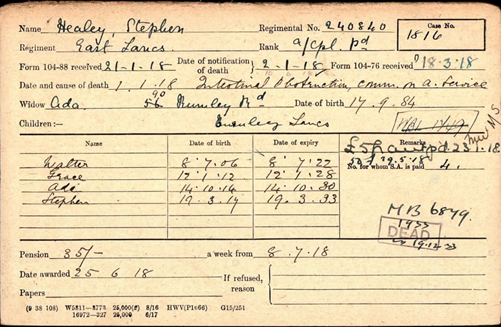 Name Healey, Stephen Regimental No. 240840 Case No.
Regiment East Lancs. Rank a/Cpl. Pd 1816
Form 104-88 received 21-1-18 Date of notification of death 2-1-18 Form 104-76 received 18.3.18
Date and cause of death 1.1.18 Intestinal Obstruction, comm. on a. Service
Widow Ada. 56 90 Burnley Rd Date of birth 17.9.84
Children:— Burnley Lancs
Name Date of birth Date of expiry Remarks
No. for whom S.A. is paid 4.
Walter 8.7.06 8.7.22
Grace 12.1.12 12.1.28
Ada 14.10.14 14.10.30
Stephen 19.3.17 19.3.33
MB 6849.
1933
DEAD
19.12.33
Pension 35/- a week from 8.7.18
Date awarded 25 6 18 If refused,
Papers reason
(9 38 108) W5811—3773 25,000(2) 8/16 HWV(P1966) G15/251
16972—327 25,000 6/17